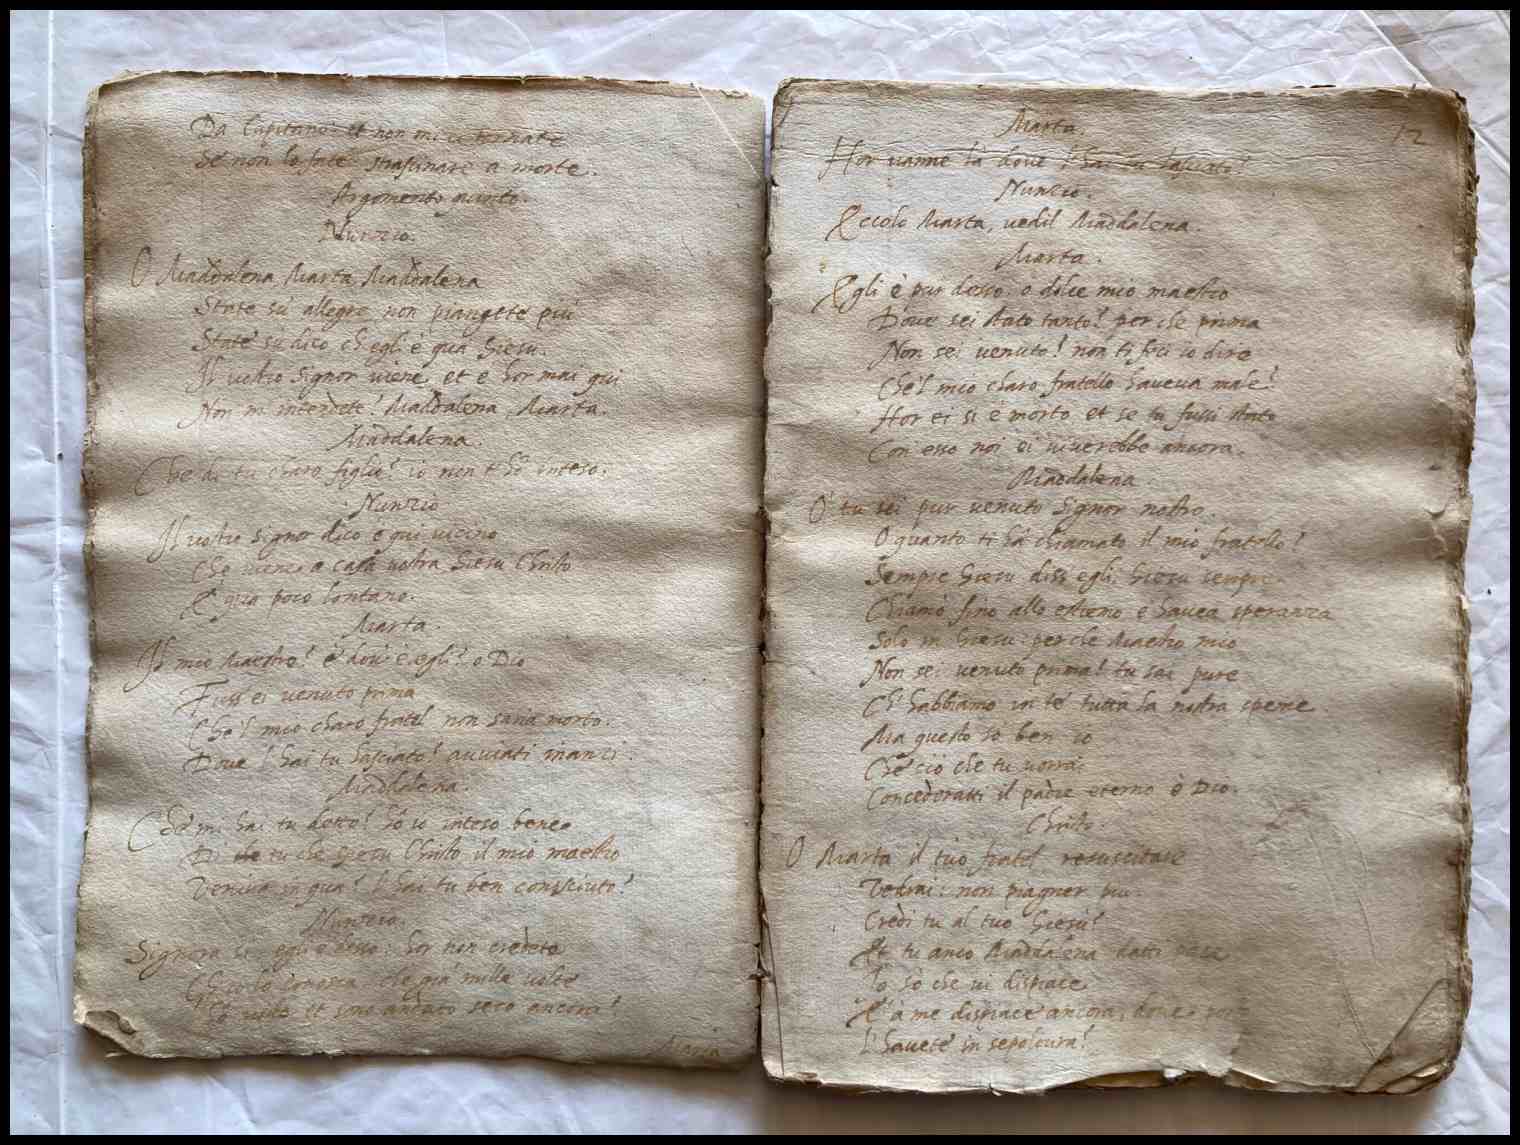 Da Capitano: et non mi ritornate
Se non lo fate strassinare a morte.
Argomento quinto.
Nunzio.
O Maddalena, Marta, Maddalena
State sù allegre non piangete più
State sù dico ch'egli è quà Giesu.
Il vostro Signor viene, et è hor mai qui
Non m'intendete? Maddalena, Marta.
Maddalena.
Che di tu charo figlio? io non t'hò inteso.
Nunzio
Il vostro Signor dico è qui vicino
Che viene a casa vostra Giesu Christo
E qua poco lontano.
Marta.
Il mio Maestro? e dov'è egli? o Dio
Fuss'ei venuto prima
Che'l mio charo fratel non saria morto.
Dove l'hai tu lasciato? avviati inanzi
Maddalena.
Che m'hai tu detto? hò io inteso bene
Di tu che Giesu Christo il mio maestro
Veniva in qua? l'hai tu ben conosciuto?
Nuntio.
Signora si, egli è desso: hor non credete
Ch'io lo conosca che già mille volte
L'hò visto et sono andato seco ancora?
Marta
12
Marta.
Hor vanne là dove l'hai tu lasciato?
Nunzio.
Eccolo Marta, vedil Maddalena.
Marta.
Egli è pur desso, o dolce mio maestro
Dove sei stato tanto? perche prima
Non sei venuto? non ti feci io dire
Che'l mio charo fratello haveva male?
Hor ei si è morto et se tu fussi stato
Con esso noi ei viverebbe ancora.
Maddalena.
O tu sei pur venuto Signor nostro.
O quanto ti hà chiamato il mio fratello?
Sempre Giesu diss'egli, Giesu sempre
Chiamò fino allo estremo e havea speranza
Solo in Giesu: perche Maestro mio
Non sei venuto prima? tu sai pure
Ch'habbiamo in te tutta la nostra speme
Ma questo sò ben io
Che ciò che tu vorrai
Concederatti il padre eterno è Dio.
Christo.
O Marta il tuo fratel resuscitare
Vedrai: non piagner più.
Credi tu al tuo Giesù?
Et tu anco Maddalena datti pace
Io sò che vi dispiace
E à me dispiace ancora, dove
L'havete in sepoltura?